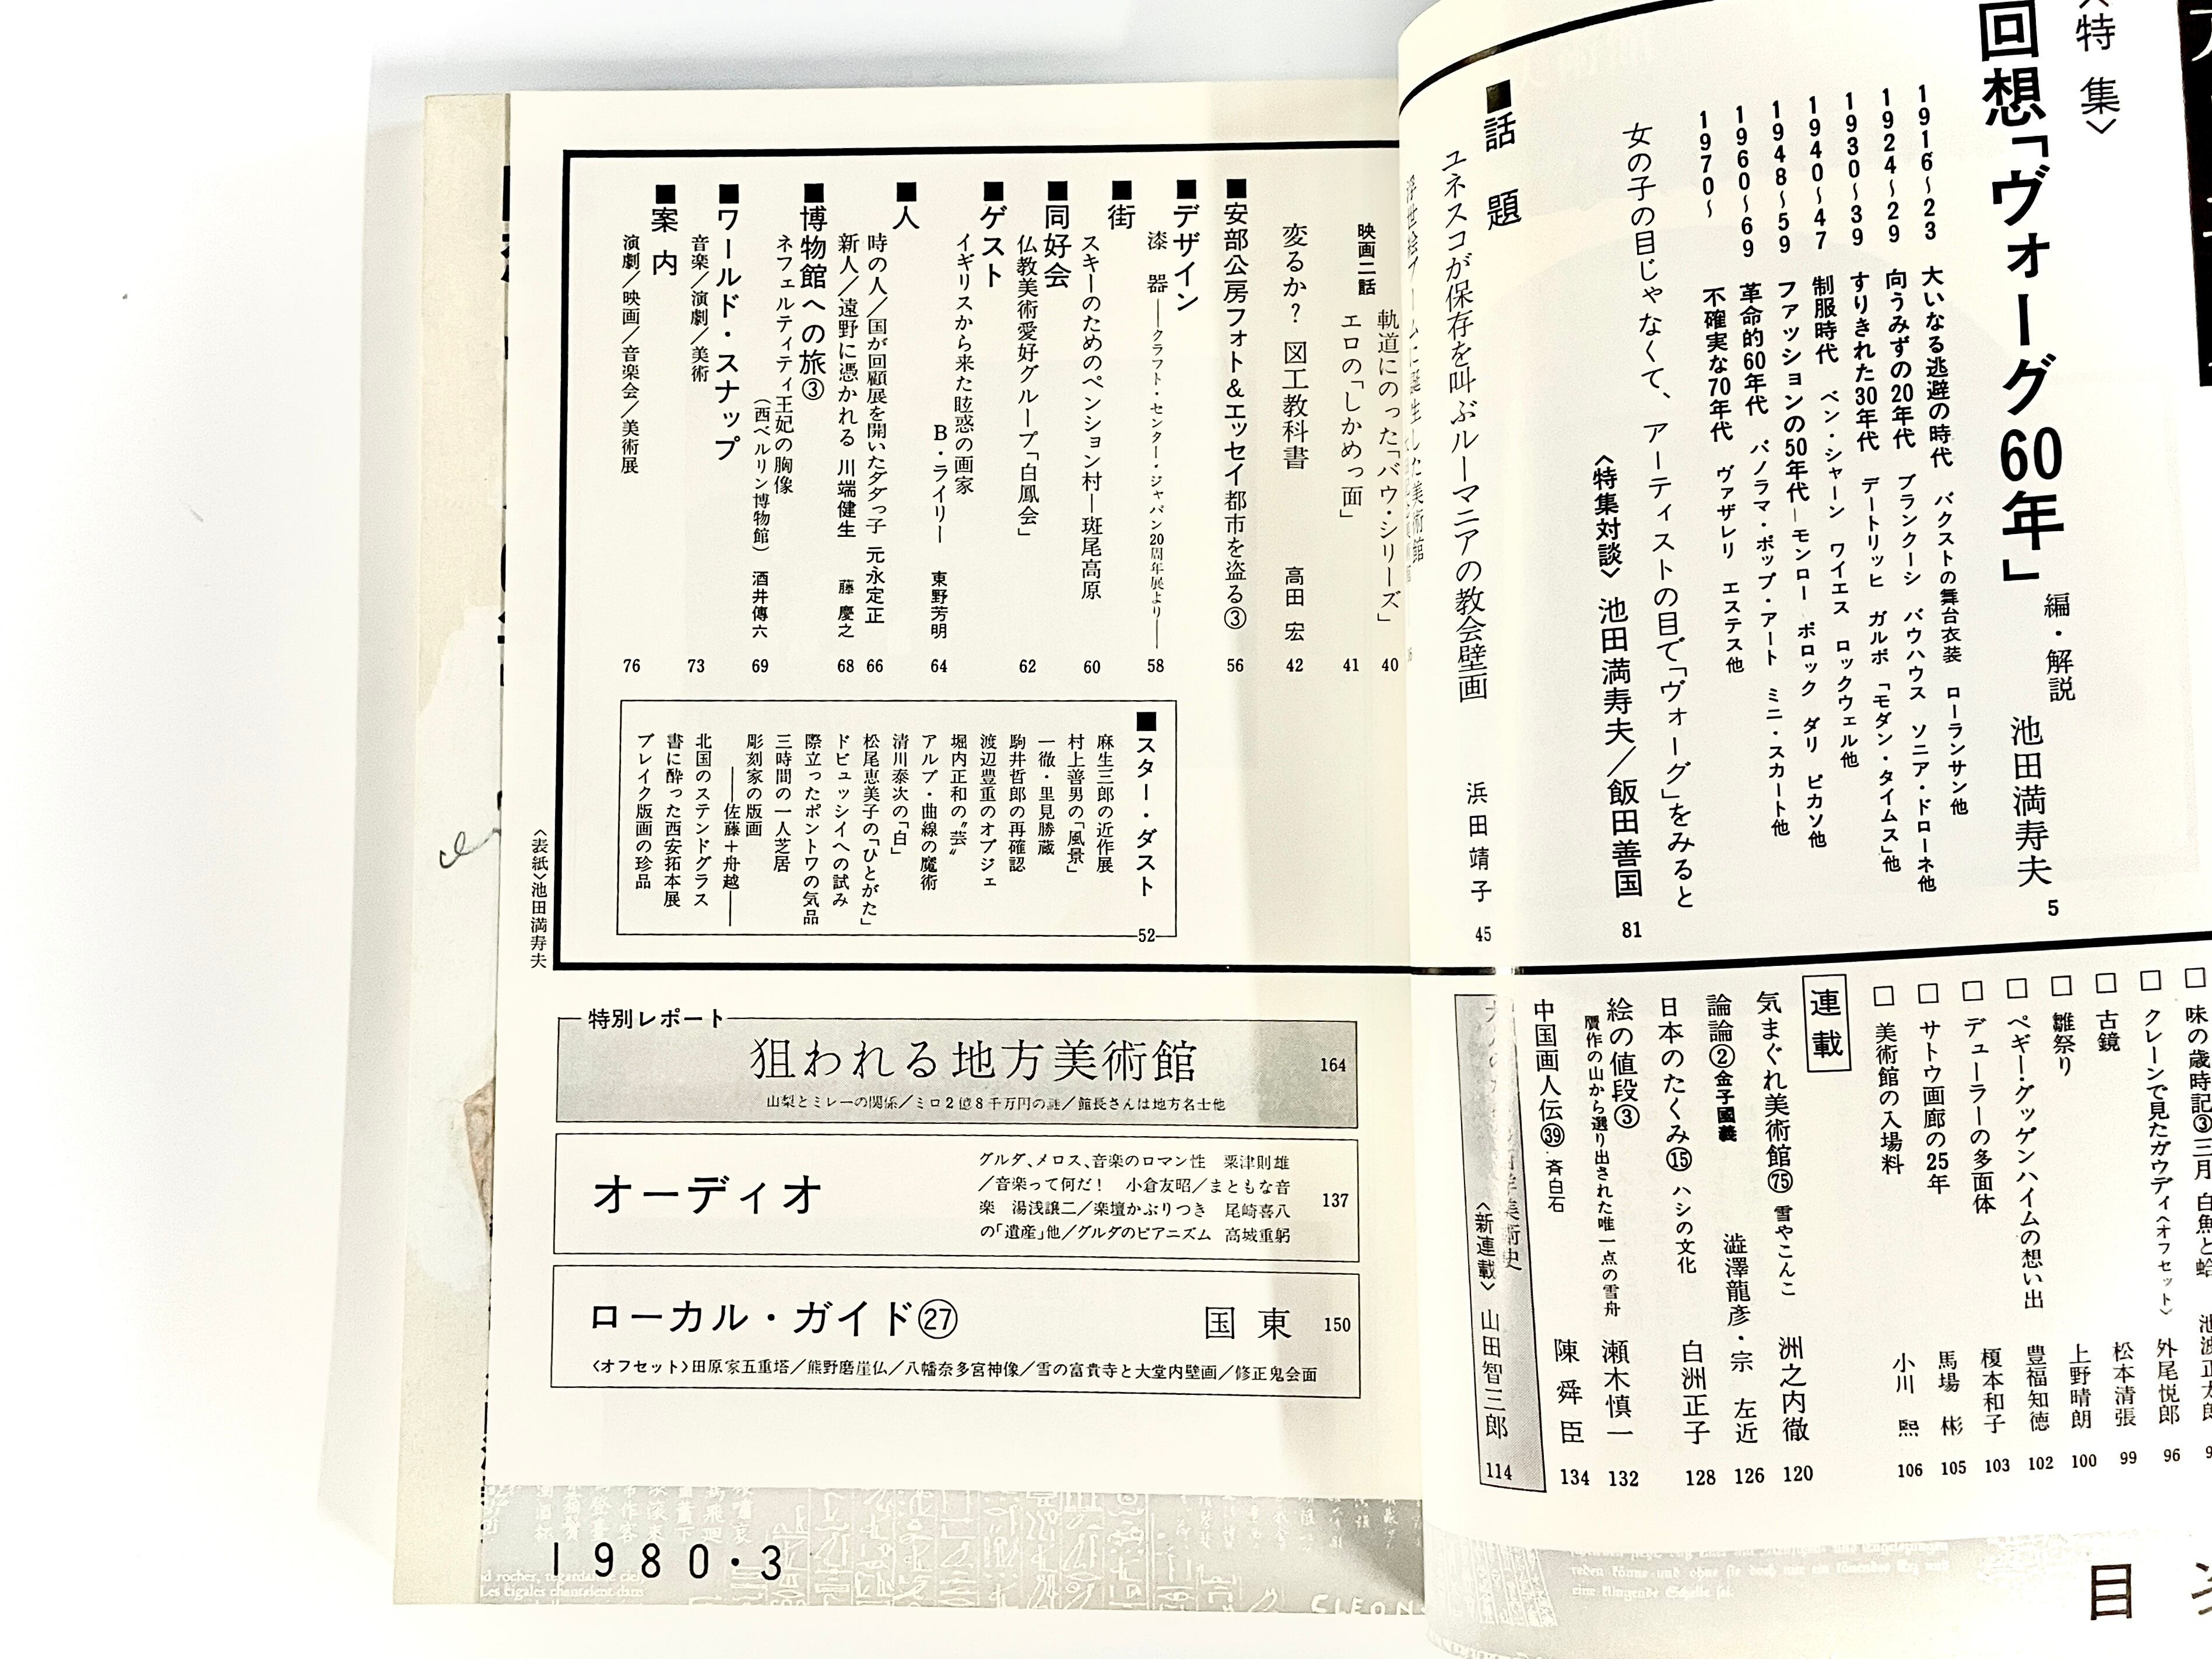 〈特集〉
回想「ヴォーグ60年」
編・解説 池田満寿夫 5
1916〜23 大いなる逃避の時代 バクストの舞台衣装 ローランサン他
1924〜29 向うみずの20年代 ブランクーシ バウハウス ソニア・ドローネ他
1930〜39 すりきれた30年代 デートリッヒ ガルボ 「モダン・タイムス」他
1940〜47 制服時代 ベン・シャーン ワイエス ロックウェル他
1948〜59 ファッションの50年代―モンロー ポロック ダリ ピカソ他
1960〜69 革命的60年代 パノラマ・ポップ・アート ミニ・スカート他
1970〜 不確実な70年代 ヴァザレリ エステス他
女の子の目じゃなくて、アーティストの目で「ヴォーグ」をみると
〈特集対談〉池田満寿夫／飯田善国 81
■話題
ユネスコが保存を叫ぶルーマニアの教会壁画 浜田靖子 45
映画二話
軌道にのった「バウ・シリーズ」 40
エロの「しかめっ面」 41
変るか? 図工教科書 高田 宏 42
■安部公房フォト&エッセイ都市を盗る③ 56
■デザイン
漆 器――クラフト・センター・ジャパン20周年展より―― 58
■街
スキーのためのペンション村―斑尾高原 60
■同好会
仏教美術愛好グループ「白鳳会」 62
■ゲスト
イギリスから来た眩惑の画家
B・ライリー― 東野芳明 64
■人
時の人／国が回顧展を開いたダダっ子 元永定正 66
新人／遠野に憑かれる 川端健生 藤 慶之 68
■博物館への旅③
ネフェルティティ王妃の胸像
(西ベルリン博物館) 酒井傳六 69
■ワールド・スナップ
音楽／演劇／美術 73
■案内
演劇／映画／音楽会／美術展 76
■スター・ダスト 52
麻生三郎の近作展
村上善男の「風景」
一徹・里見勝蔵
駒井哲郎の再確認
渡辺豊重のオブジェ
堀内正和の〝芸〟
アルプ・曲線の魔術
清川泰次の「白」
松尾恵美子の「ひとがた」
ドビュッシイへの試み
際立ったポントワの気品
三時間の一人芝居
彫刻家の版画
――佐藤+舟越――
北国のステンドグラス
書に酔った西安拓本展
ブレイク版画の珍品
〈表紙〉池田満寿夫
味の歳時記③三月 白魚と蛤
□クレーンで見たガウディ〈オフセット〉 外尾悦郎 96
□古鏡 松本清張 99
□雛祭り 上野晴朗 100
□ペギー・グッゲンハイムの想い出 豊福知徳 102
□デューラーの多面体 榎本和子 103
□サトウ画廊の25年 馬場 彬 105
□美術館の入場料 小川 煕 106
連載
気まぐれ美術館㊵ 雪やこんこ 洲之内徹 120
論論②金子國義 澁澤龍彥・宗 左近 126
日本のたくみ⑮ ハシの文化 白洲正子 128
絵の値段③
贋作の山から選り出された唯一点の雪舟 瀬木慎一 132
中国画人伝㊴ 斉白石 陳舜臣 134
〈新連載〉山田智三郎 114
特別レポート
狙われる地方美術館 164
山梨とミレーの関係／ミロ2億8千万円の謎／館長さんは地方名士他
オーディオ 137
グルダ、メロス、音楽のロマン性 粟津則雄
／音楽って何だ! 小倉友昭／まともな音
楽 湯浅譲二／楽壇かぶりつき 尾崎喜八
の「遺産」他／グルダのピアニズム 高城重躬
ローカル・ガイド㉗ 国東 150
〈オフセット〉田原家五重塔／熊野磨崖仏／八幡奈多宮神像／雪の富貴寺と大堂内壁画／修正鬼会面
1980・3
目